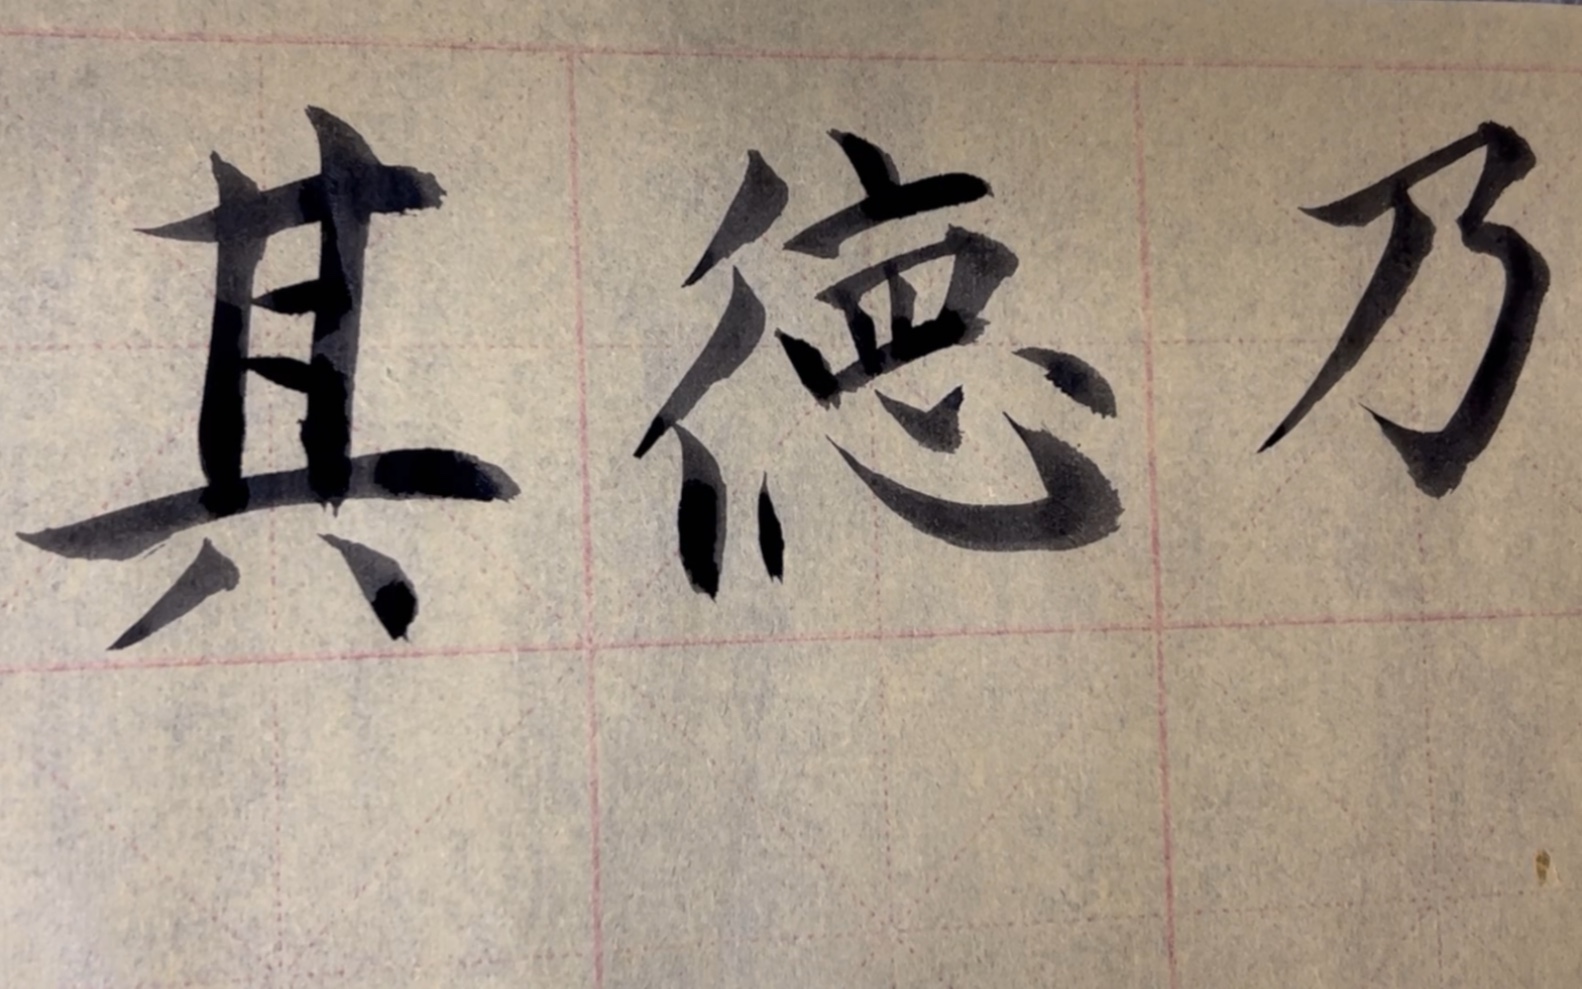 其德乃